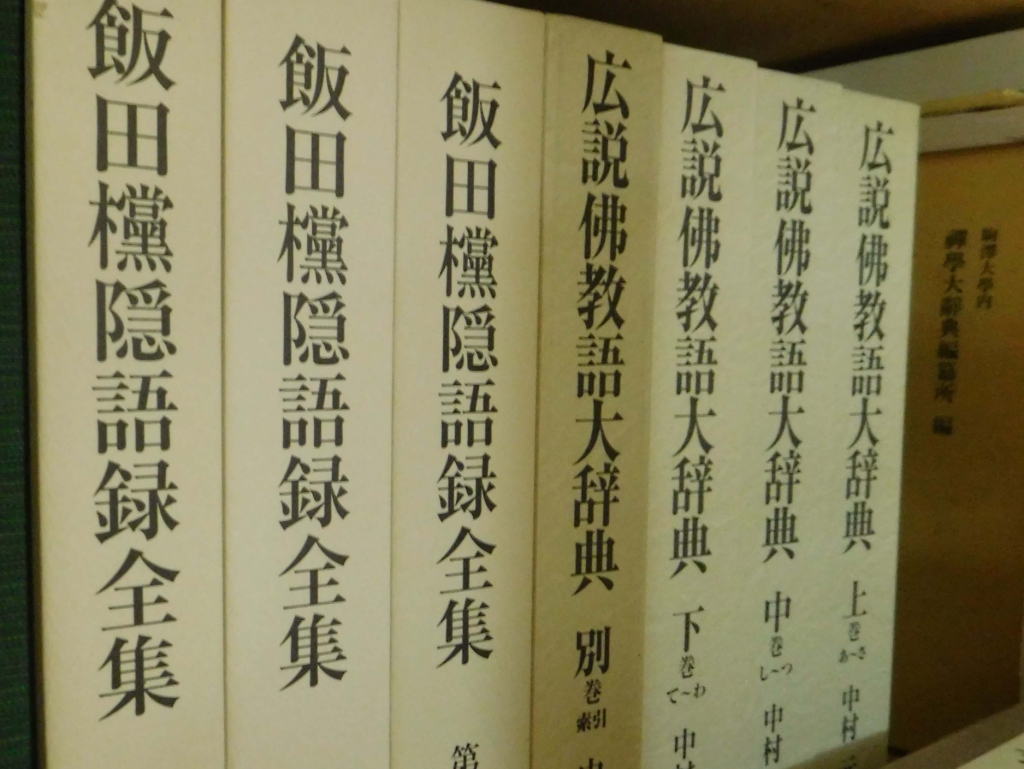 飯田欓隠語録全集
飯田欓隠語録全集
飯田欓隠語録全集 第
広説佛教語大辞典 別巻 索引 中
広説佛教語大辞典 下巻 て〜わ 中村
広説佛教語大辞典 中巻 し〜つ 中村
広説佛教語大辞典 上巻 あ〜さ 中村 元
駒澤大學内
禪學大辭典編纂所 編